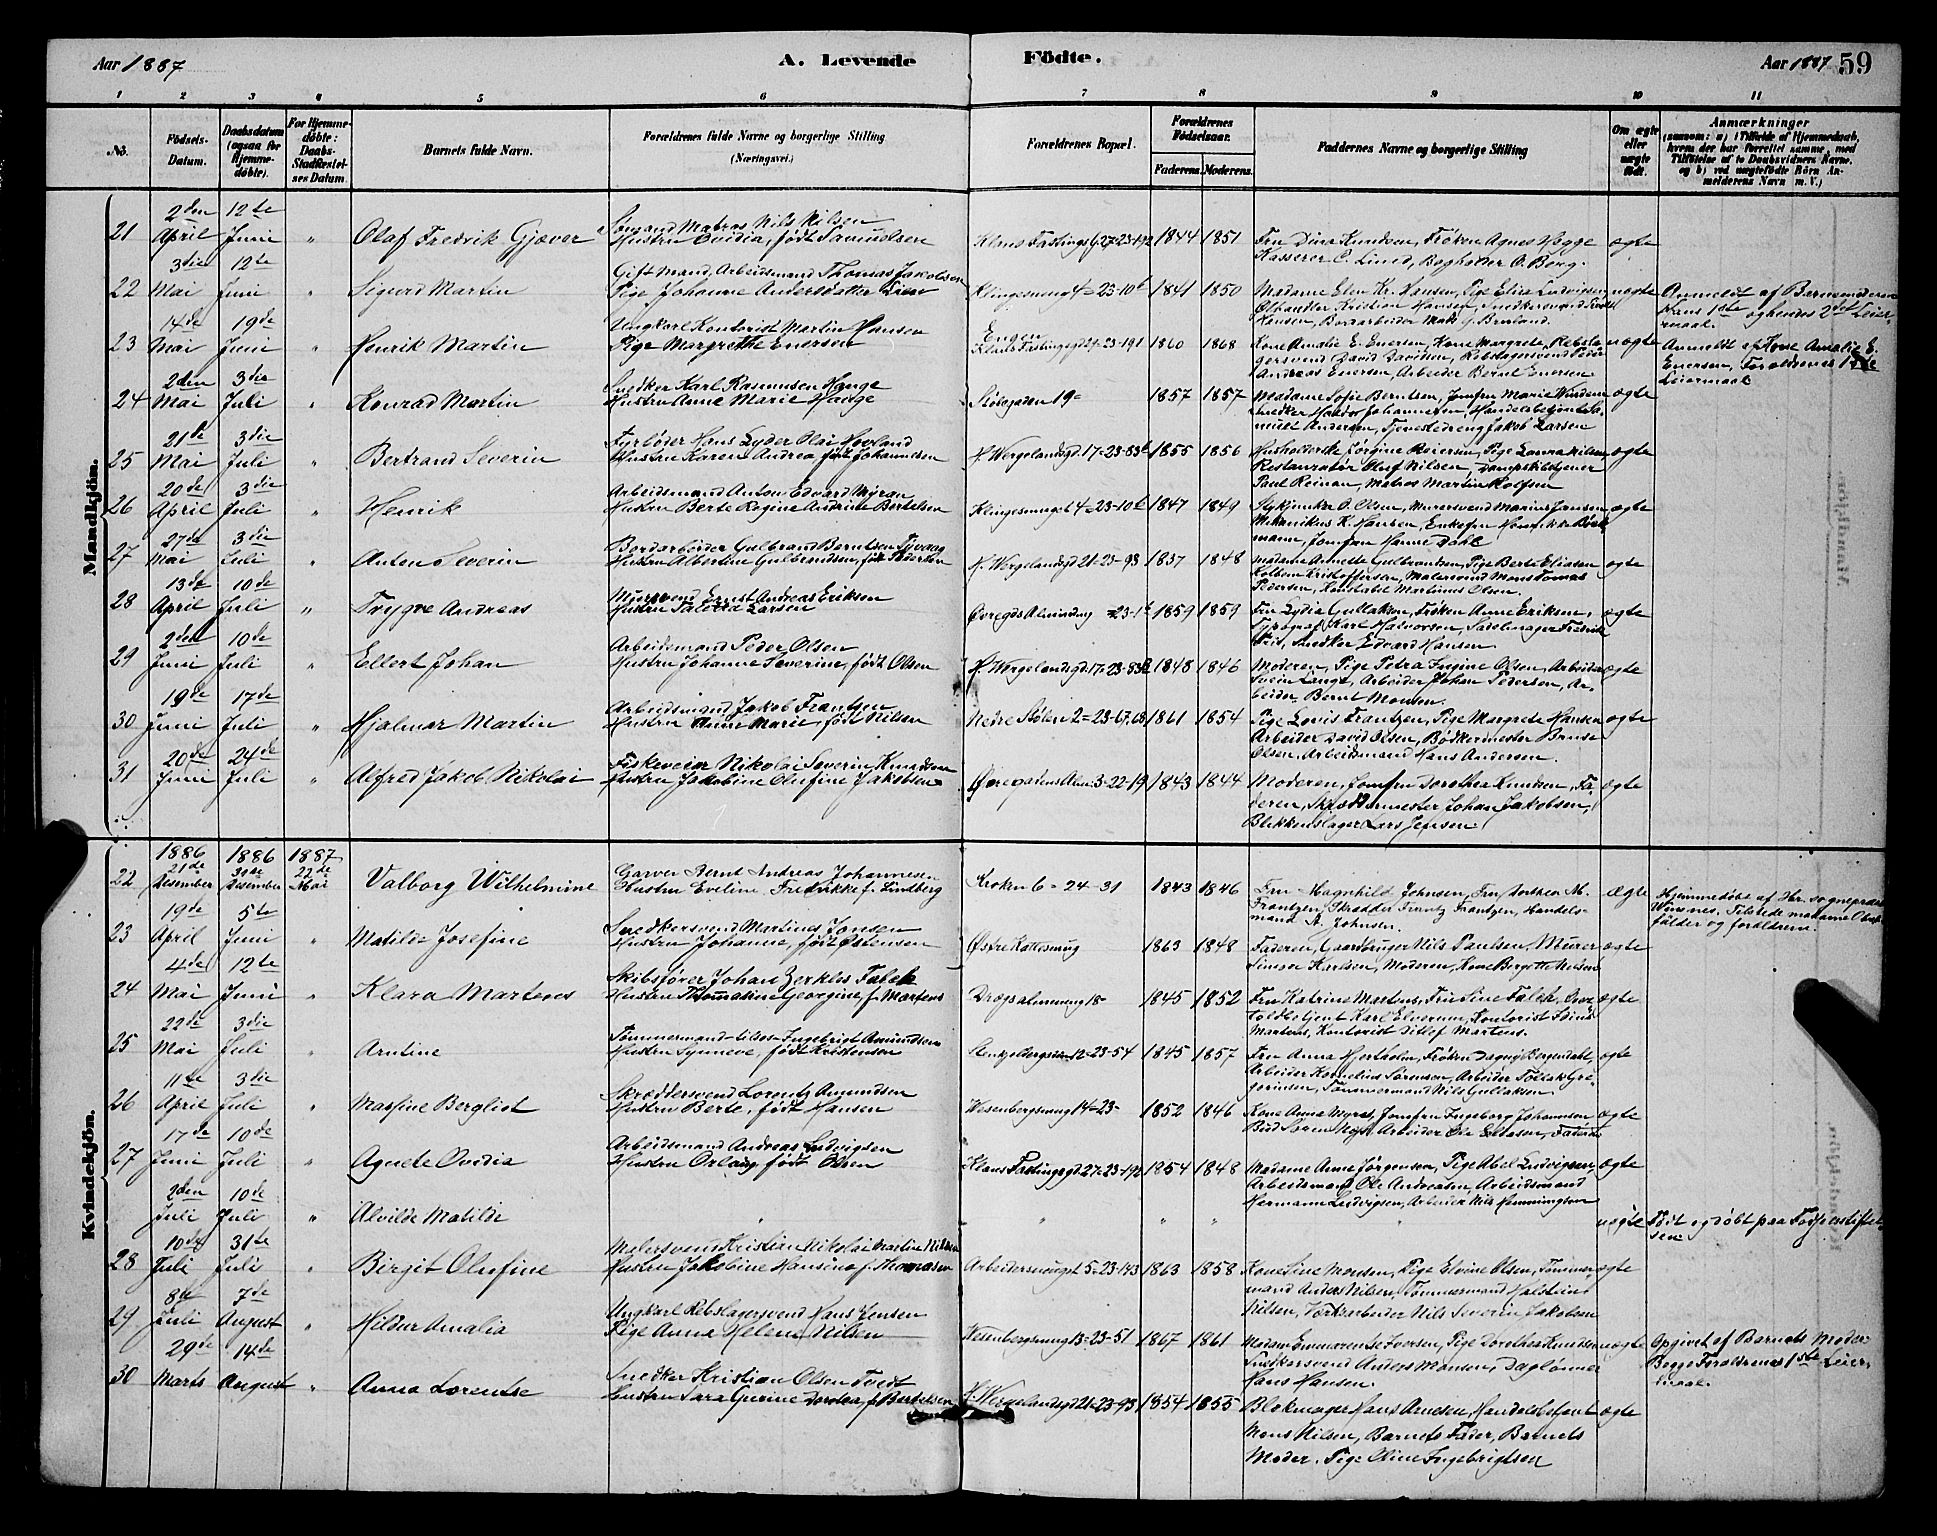 Aar 1887
A. Levende
Födte.
Aar 1887
59
1 2 3 4 5 6 7 8 9 10 11
No.
Födsels-Datum.
Daabsdatum (ogsaa for Hjemmedöbte).
For Hjemmedöbte: Daabs-Stadfæstelses Datum.
Barnets fulde Navn.
Forældrenes fulde Navne og borgerlige Stilling (Næringsvei.)
Forældrenes Bopæl.
Forældrenes Födselsaar.
Faderens Moderens
Faddernes Navne og borgerlige Stilling
Om ægte eller uægte födt.
Anmærkninger
(saasom: a) i Tilfælde af Hjemmedaab, hvem der har forrettet samme, med Tilföielse af to Daabsvidners Navne, og b) ved uægtefödte Börn Anmelderens Navn m. V.)
Mandkjön.
21 2den April 12te Juni " Olaf Fredrik Gjæver
Sömand Matros Nils Nilsen
Hustru Ovidia, født Samuelsen
Klaus Fastingsg 27-23-192 1844 1851
Fru Dina Knudsen, Frøken Agnes Hagge
Kasserer C. Lund, Bogholder O. Borg.
ægte
22 3die Mai 12te Juni " Sigurd Martin
Gift Mand, Arbeidsmand Thomas Jakobsen
Pige Johanne Andersdatter Lien
Klingesmug 4-23-10b 1841 1850
Madame Elen Kr. Hansen, Pige Elisa Ludvigsen,
Ølhandler Kristian Hansen,
Hansen, Bordarbeider
uægte
Anmeldt af Barnemoderen
Hans 1ste og hendes 2det Leiermaal.
23 14de Mai 19de Juni " Henrik Martin
Ungkarl Kontorist Martin Hansen
Pige Margrethe Enersen
Klaus Fastingsgd 21-23-191 1860 1868
Kone Amalie E. Enersen, Kone Margrete, Rebslagersvend David Davidsen, Rebslagersvend Peder
Andreas Enersen, Arbeider Bernt Enersen
uægte
Anmeldt af Kone Amalie E. Enersen, Foraldrenes 1ste Leiermaal
24 2den Mai 3die Juli " Konrad Martin
Snedker Karl Rasmussen Hauge
Hustru Anne Marie Hauge
Stølegaden 19- 1857 1857
Madame Sofie Berntsen, Jomfru Marie
Snedker Johannesen, Handelsbetjent Samuelt Andersen, Tjenestedreng Jakob Larsen
ægte
25 21de Mai 3die Juli " Bertrand Severin
Fyrbøder Hans Lyder Olai Hovland
Hustru Karen Andrea født Johannesen
H. Wergelandsgd. 17-23-83b 1855 1856
Husholderske Jørgine Reiersen, Pige Laura Nilsen
Restauratør Oluf Nilsen, Dampskibstjener
Paul Reinan, Matros Martin Rolfsen
ægte
26 20de April 3die Juli " Henrik
Arbeidsmand Anton Edvard Myran
Hustru Berte Regine Bertelsen
Klingesmuget 4-23-10b 1847 1849
O. Olsen, Murersvend Marius Jansen
Mekanikus K. Hansen, Enkefru
Jomfru Hanne Dahl
ægte
27 27de Mai 3die Juli " Anton Severin
Bordarbeider Gulbrand Berntsen
Hustru Albertine Gulbrandsen, født Pedersen
H. Wergelandsgd 21-23-93 1837 1848
Madame Annette Gulbrandsen, Pige Berte Eliasen
Kristoffersen, Malersvend Mons Tomas
Pedersen, Konstabel Martinus Olsen.
ægte
28 13de April 10de Juli " Trygve Andreas
Mursvend Ernst Andreas Eriksen
Hustru Larsen
Øvregds Almindng -23-1b 1859 1859
Fru Lydia Gullaksen, Frøken Anne Eriksen,
Typograf Karl Halvorsen, Sadelmager Fredrik
Snedker Edvard Hansen.
ægte
29 2den Juni 10de Juli " Ellert Johan
Arbeidsmand Peder Olsen
Hustru Johanne Severine, født Olsen
H. Wergelandsgd. 17-23-83b 1848 1846
Moderen, Pige Petra Ingine Olsen, Arbeider
Svein Lange, Arbeider Johan Pedersen, Arbeider Bernt Monsen
ægte
30 19de Juni 17de Juli " Hjalmar Martin
Arbeidsmand Jakob Frantzen
Hustru Marie, født Nilsen
Nedre Stølen 2-23-67.68 1861 1854
Pige Lovis Frantzen, Pige Margrete Hansen
Arbeider David Olsen, Bødkermester
Olsen, Arbeidsmand Hans Andersen.
ægte
31 20de Juni 24de Juli " Alfred Jakob Nikolai
Fiskeveier Nikolai Severin Knudsen
Hustru Jakobine Olufine Jakobsen
Øvregadens Alm 3-22-19 1843 1844
Moderen, Jomfru Dorothea Knudsen, Faderen, Skræddermester Johan Jakobsen,
Blikkenslager Lars Jensen.
ægte
Kvindekjön.
22 1886 21de Desember 1886 30de Desember 1887 22de Mai Valborg Wilhelmine
Garver Bernt Andreas Johannesen
Hustru Eveline Fredrikke f. Lindberg
Kroken 6-24-31 1843 1846
Fru Magnhild Johnsen, Fru M.
Frantzen, Skrædder Frantz Frantzen, Handelsmand A. Johnsen.
Ægte
Hjemmedøbt af Hr. sogneprest
Wisnes. Tilstede madame
og foraldrene.
23 19de April 5te Juni " Matilde Josefine
Snedkersvend Martinus Jonsen
Hustru Johanne, født Østensen
Østre Kattesmug 1863 1848
Faderen, Gaardbruger Nils Paulsen, Murer
Karlsen, Moderen, Kone Bergitte Nilsen
ægte
24 4de Mai 12te Juni " Klara Martens
Skibsfører Johan Falck
Hustru Thomasine Georgine f. Martens
Drægsalmening 18- 1845 1852
Fru Katrine Martens, Fru Sine Falck, Over
toldbetjent Karl Elverum, Kontorist
Martens, Kontorist Ditlef Martens.
ægte
25 22de Mai 3die Juli " Arntine
Tømmermand Ingebrigt Amundsen
Hustru Synneve, født Kristensen
12-23-54 1845 1857
Fru Anna Hjortholm, Frøken Dagny Bergendahl,
Arbeider Kornelius Sørensen, Arbeider Tollak Gregoriusen, Tømmermand Nils Gullaksen
ægte
26 11te April 3die Juli " Massine Bergliot
Skræddersvend Lorentz Amundsen
Hustru Berte, født Hansen
Wesenbergsmug 14-23- 1852 1846
Kone Anna Myrez, Jomfru Ingeborg Johannesen
Bud Søren Arbeider Ole Faderen
ægte
27 17de Juni 10de Juli " Agnete Ovidia
Arbeidsmand Andreas Ludvigsen
Hustru Orlaug født Olsen
Klaus Fastingsgd 27-23-192 1854 1848
Madame Anne Jørgensen, Pige Abel Ludvigsen,
Arbeidsmand Ole Andreasen, Arbeidsmand
Hermann Ludvigsen, Arbeider Nils Henningsen
ægte
2den Juli 10de Juli " Alvilde Matilde
" " " " "
uægte
Født og døbt paa Fødselsstiftelsen
28 10de Juli 31te Juli " Birgit Olufine
Malersvend Kristian Nikolai Martin Nilsen
Hustru Jakobine Hansine f. Thomasen
Arbeidersmuget 5-23-143 1863 1858
Kone Sine Monsen, Pige Elvine Olsen, Tømmermand Anders Nilsen, Tømmermand Halstein
Nilsen, Værkarbeider Nils Severin Jakobsen
ægte
29 8de Juli 7de August " Hildur Amalia
Ungkarl Rebslagersvend Hans Jensen
Pige Anna Helene Nilsen
Wesenbergsmug 13-23-51 1867 1861
Madam Emmerentse Iversen, Pige Dorothea Knudsen
Snedkersvend Anders Monsen, Daglønner
Hans Hansen.
uægte
Opgivet af Barnets Moder
Begge Foraldrenes 1ste Leiermaal.
30 29de Marts 14de August " Anna Lorentse
Snedker Kristian Olsen Tvedt
Hustru Sara Gurine Dorthea f. Bertelsen
H. Wergelandsgd 21-23-93 1854 1855
Blokmager Hans Arnesen, Handelsbetjent
Mons Nilsen, Barnets Fader, Barnets
Moder. Pige Oline Ingebrigtsen
ægte